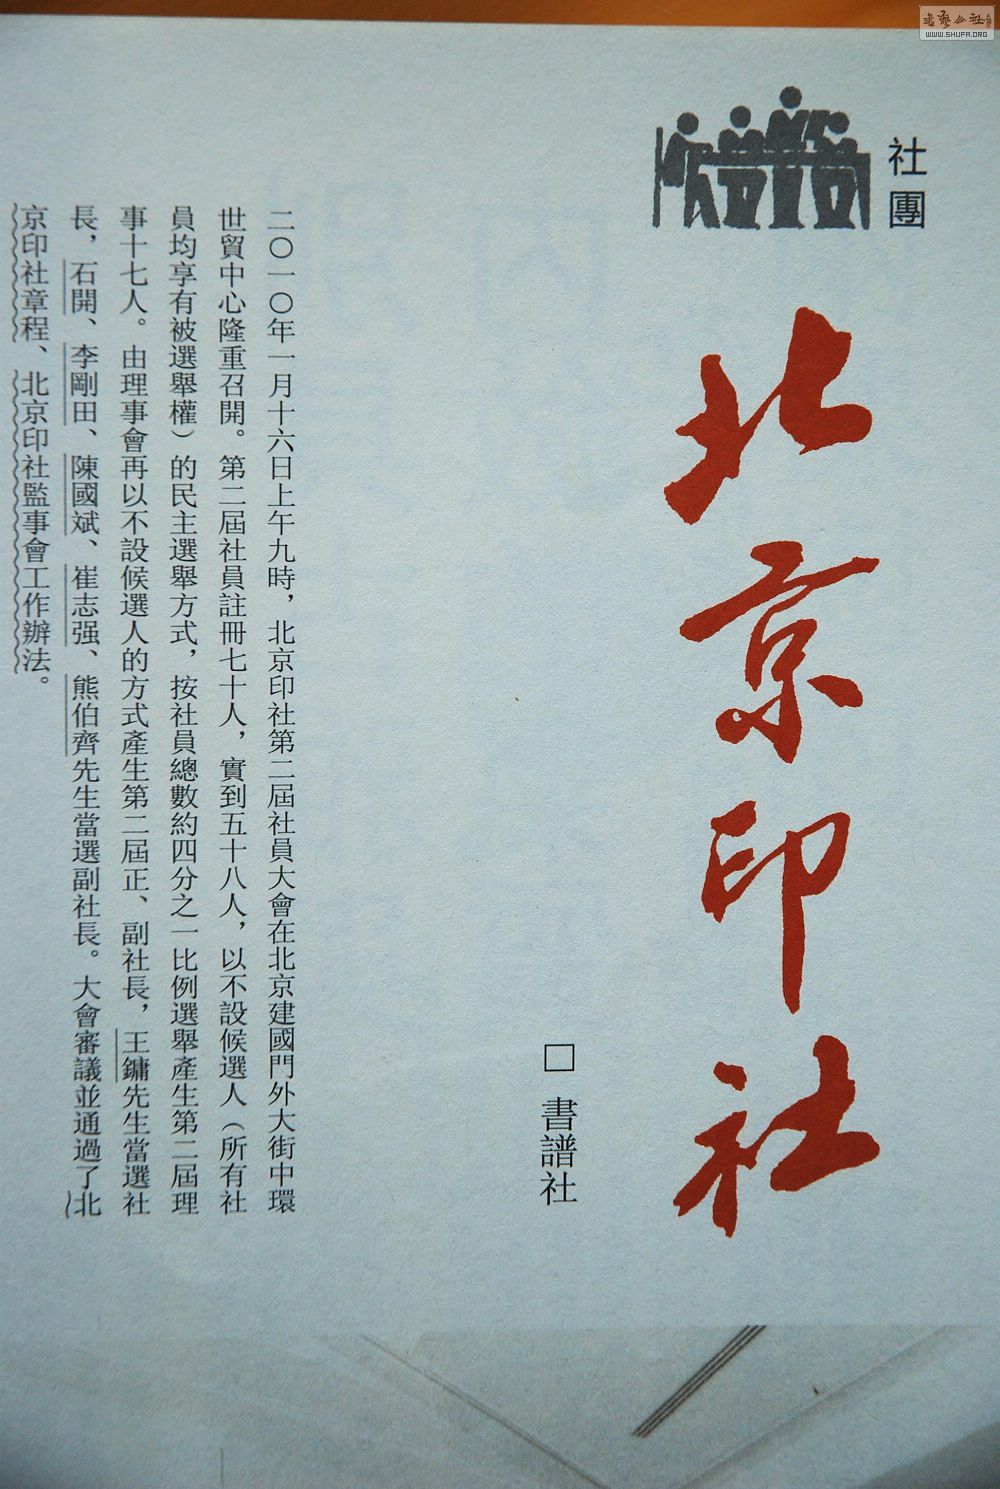 社團
北京印社
□ 書譜社
二〇一〇年一月十六日上午九時，北京印社第二屆社員大會在北京建國門外大街中環
世貿中心隆重召開。第二屆社員註冊七十人，實到五十八人，以不設候選人（所有社
員均享有被選舉權）的民主選舉方式，按社員總數約四分之一比例選舉產生第二屆理
事十七人。由理事會再以不設候選人的方式產生第二屆正、副社長，王鏞先生當選社
長，石開、李剛田、陳國斌、崔志强、熊伯齊先生當選副社長。大會審議並通過了北
京印社章程、北京印社監事會工作辦法。
WWW.SHUFA.ORG